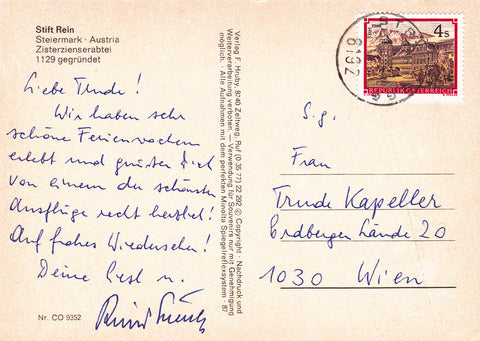 Stift Rein
Steiermark · Austria
Zisterzienserabtei
1129 gegründet
Liebe Trude!
Wir haben sehr
schöne Ferienwochen
erlebt und grüßen Dich
von einem der schönsten
Ausflüge recht herzlich!
Auf frohes Wiedersehen!
Deine
Nr. CO 9352
Verlag F. Hruby, 8740 Zeltweg, Ruf (0 35 77) 22 292 © Copyright · Nachdruck und
Weiterverarbeitung verboten. — Verwendung für Souvenirs nur mit Genehmigung
möglich. · Alle Aufnahmen mit dem perfekten Minolta Spiegelreflexsystem · 87
4 S
REPUBLIK ÖSTERREICH
S.g.
Frau
Trude Kapeller
Erdberger Lände 20
1030 Wien